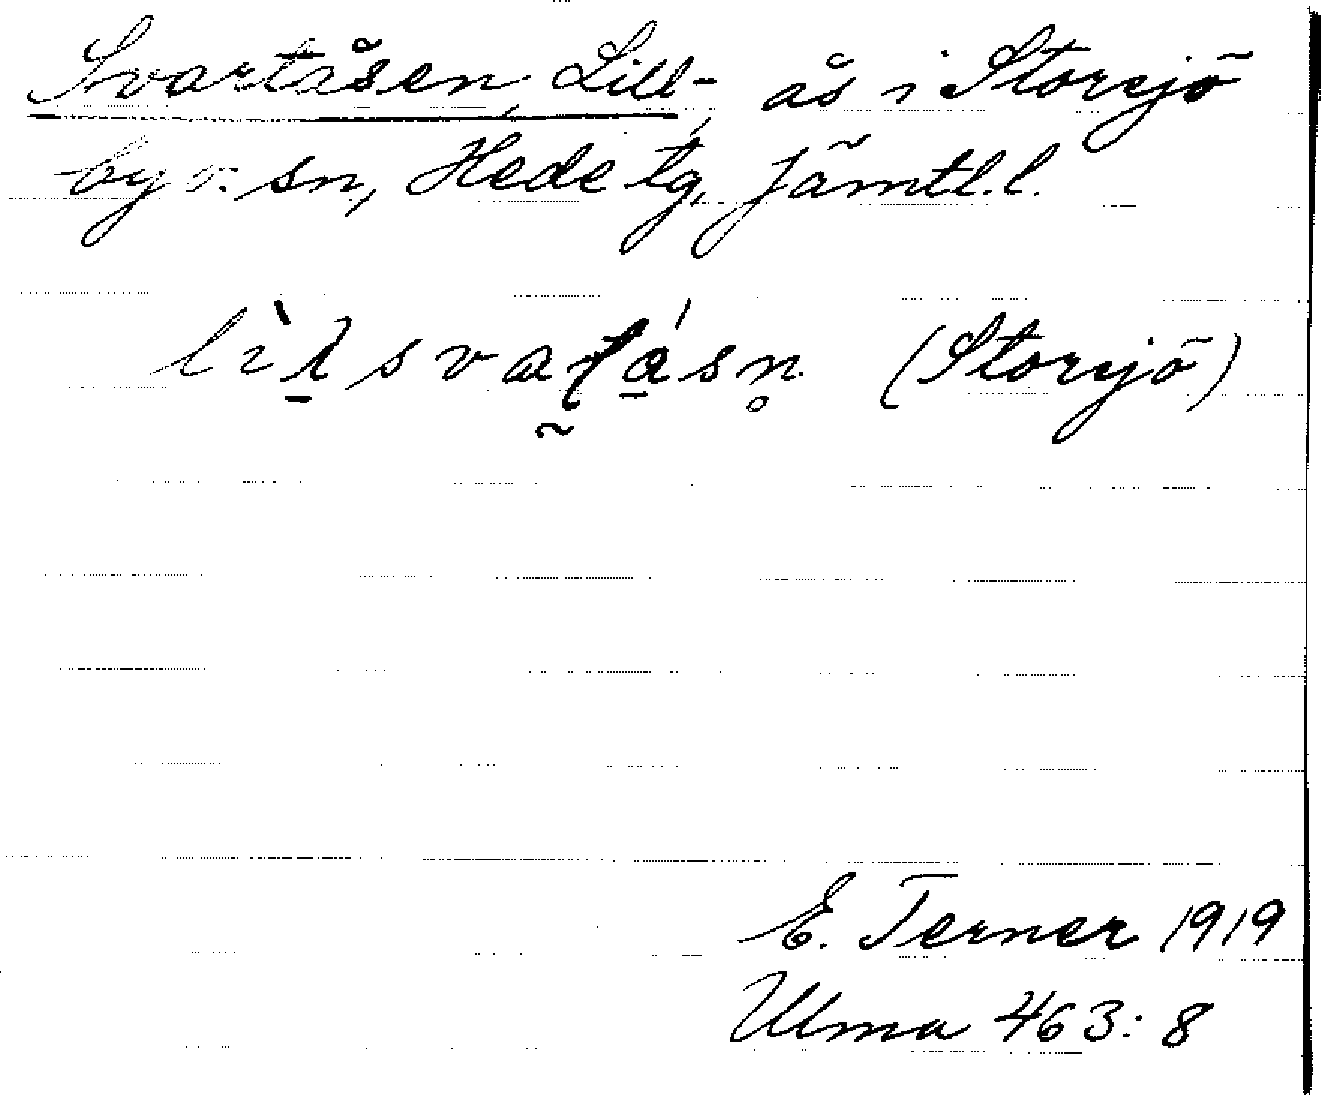 Svartåsen, Lill-, ås i Storsjö
by o. sn, Hede tg, Jämtl. l.
(Storsjö)
E. Terner 1919
Ulma 463: 8